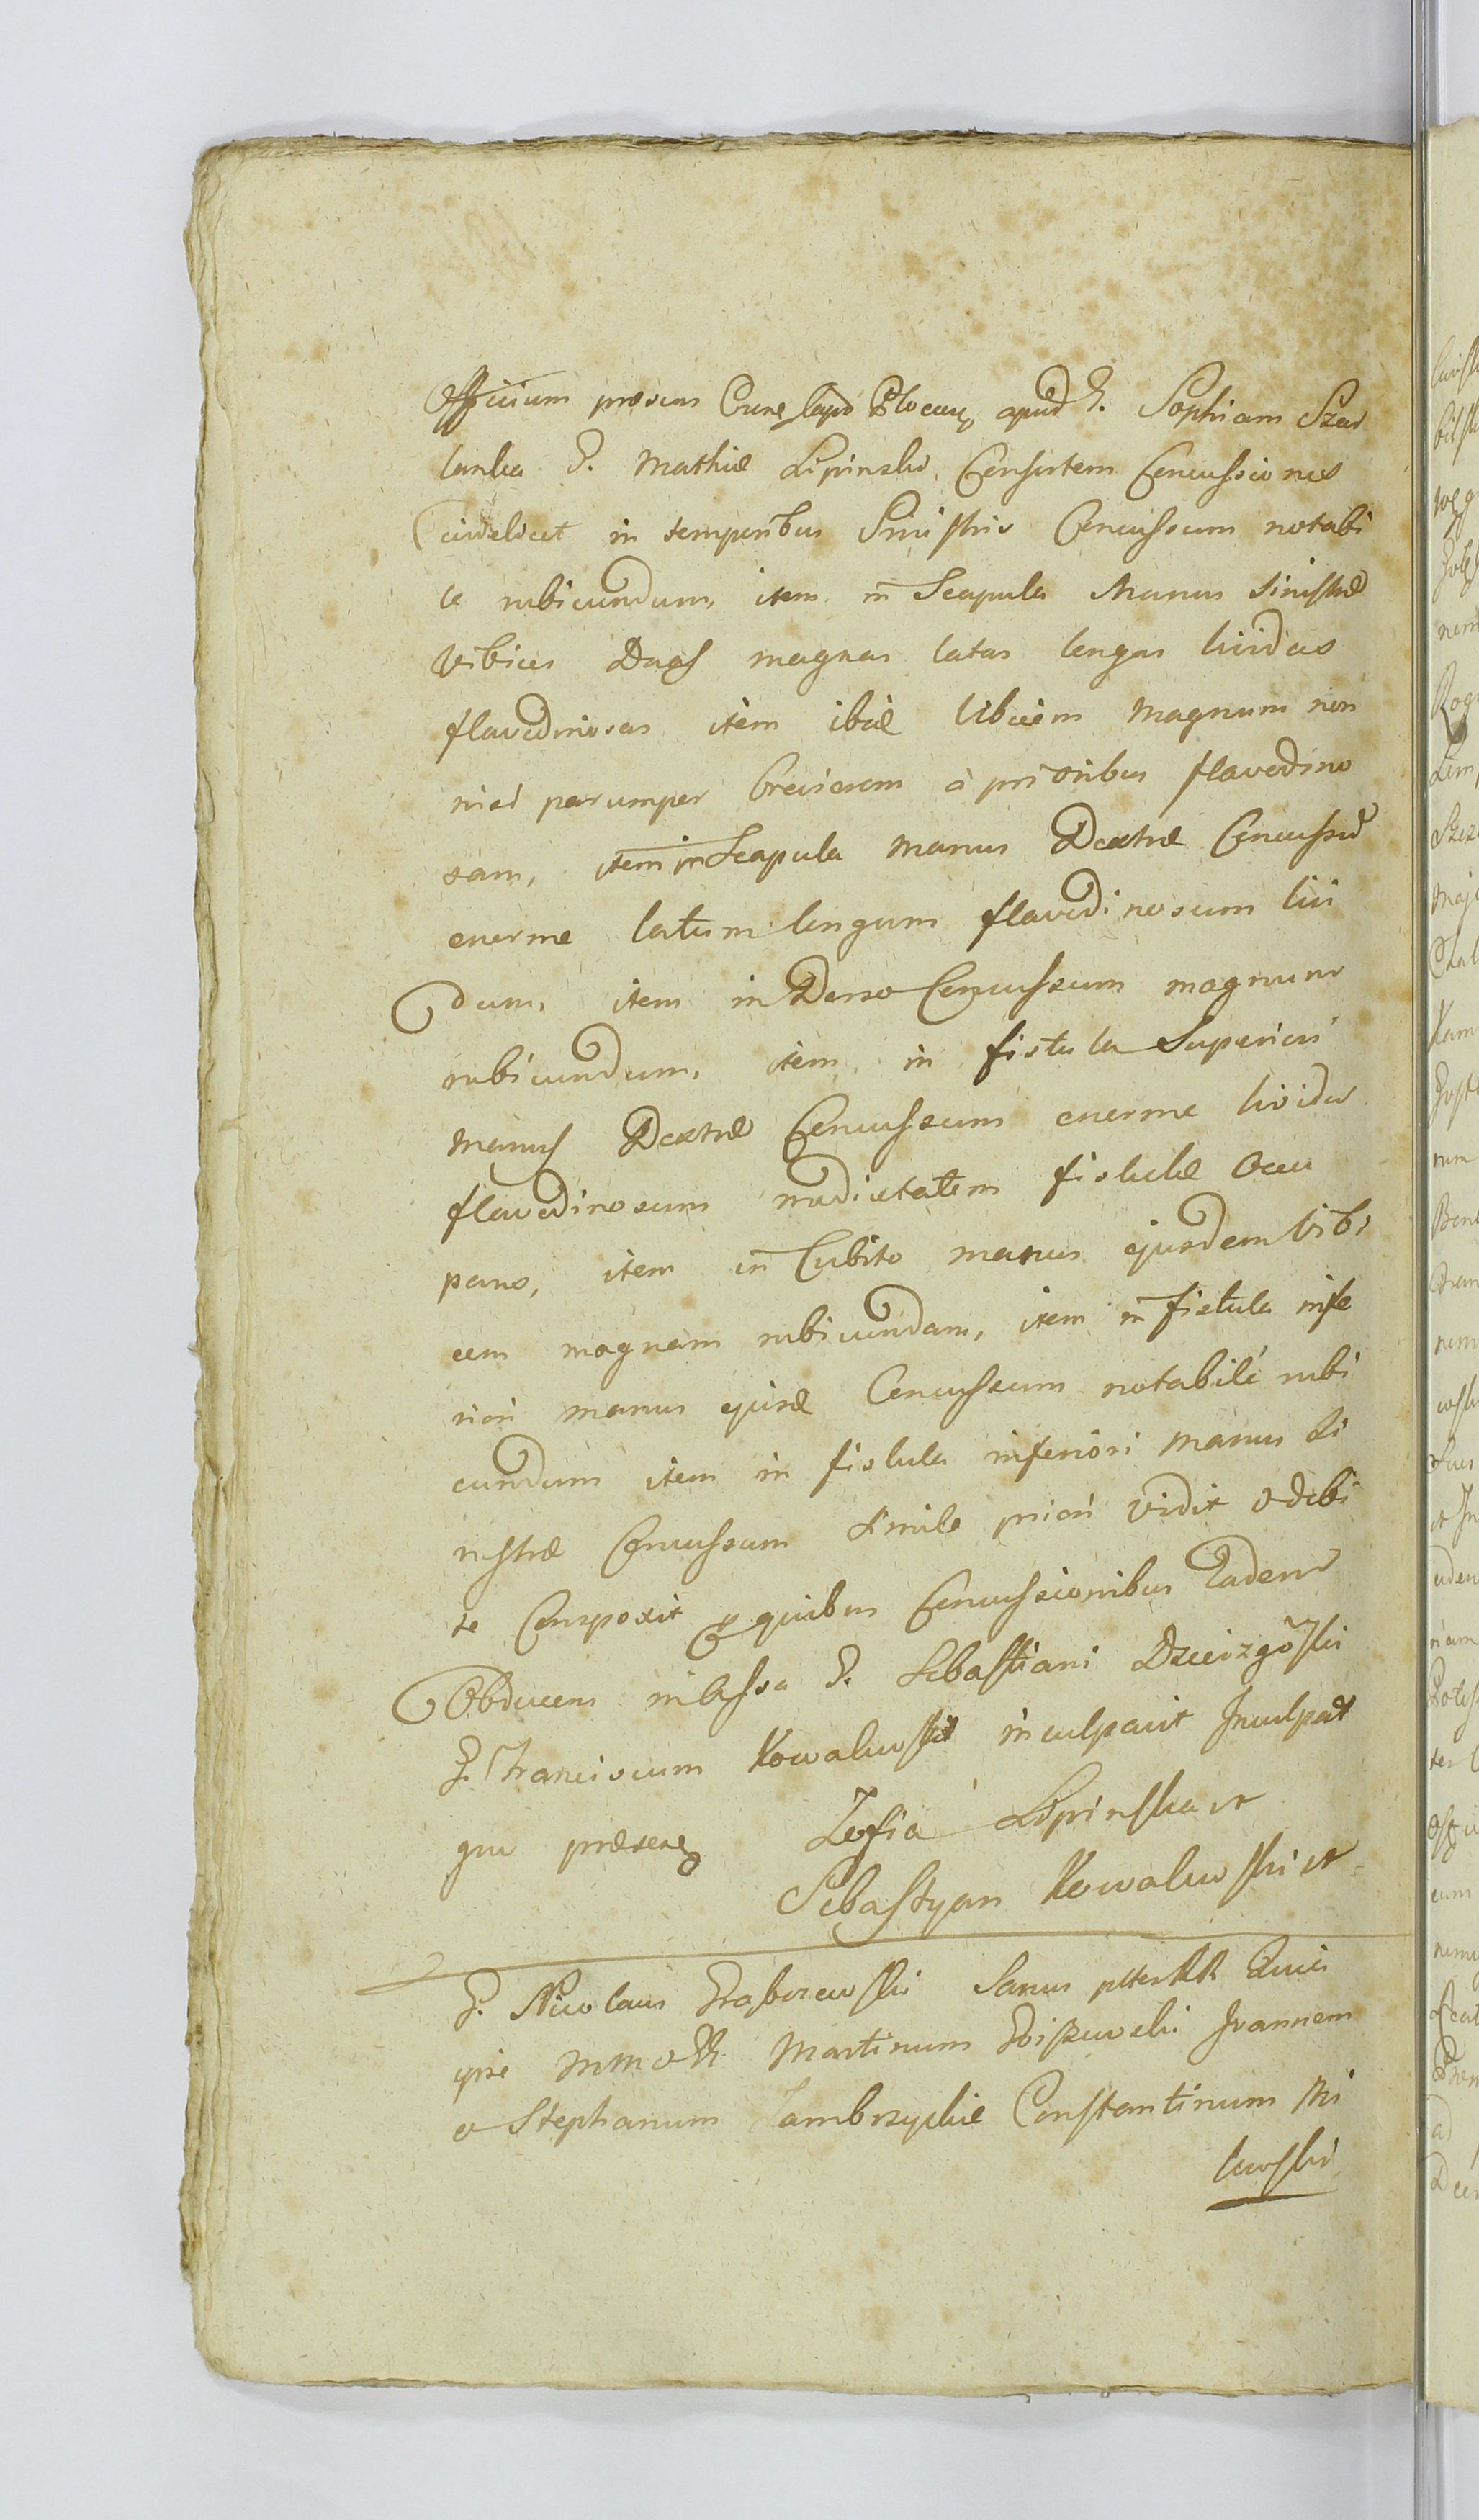 Officium præsens Cap Plocen apud G. Sophiam Szar
lanka G. Mathiæ Lipinski Consortem Concussiones
videlicet in temporibus Sinistris Concussum notabi
le rubicundum, item in Scapula Manus sinistræ
vibices Duas magnas latas longas lividas
flavedinosas item ibid vibicem magnam non
nisi parumper breviorem à prioribus flavedino
sam, item in Scapula manus Dextræ Concussū
enorme latum longum flavedinosum livi
dum, item in Dorso Concussum magnum
rubicundum, item in fistula Superiori
manus Dextræ Concussum enorme lividū
flavedinosum medietatem fistulæ occu
pans, item in Cubito manus ejusdem Vibi
cem magnam rubicundam, item in fistula infe
riori manus ejusd Concussum notabile rubi
cundum item in fistula inferiori manus Si
nistræ Concussum simile priori vidit & sibi
de quibus Concussionibus Eadem
Obducens G. Sebastiani
G. Franciscum Kowalewski inculpavit Inculpat
que præsen Zofia Lipinska
Sebastyan Kowalewski
G. Nicolaus Sanus
Martinum Joannem
& Stephanum Zambrzyckie Constantinum Mi
lewski